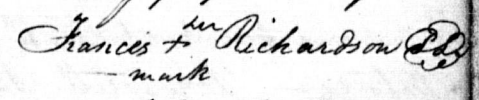 Frances + her Richardson
mark